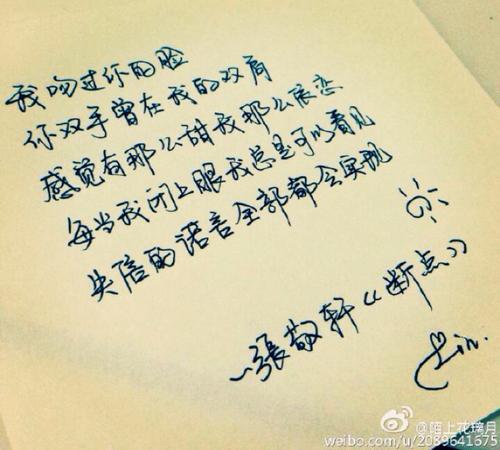 我吻过你的脸
你双手曾在我的双肩
感觉有那么甜我那么依恋
每当我闭上眼我总是可以看见
失信的诺言全部都会实现
~張敬轩《断点》
@陌上花璃月
weibo.com/u/2089641675